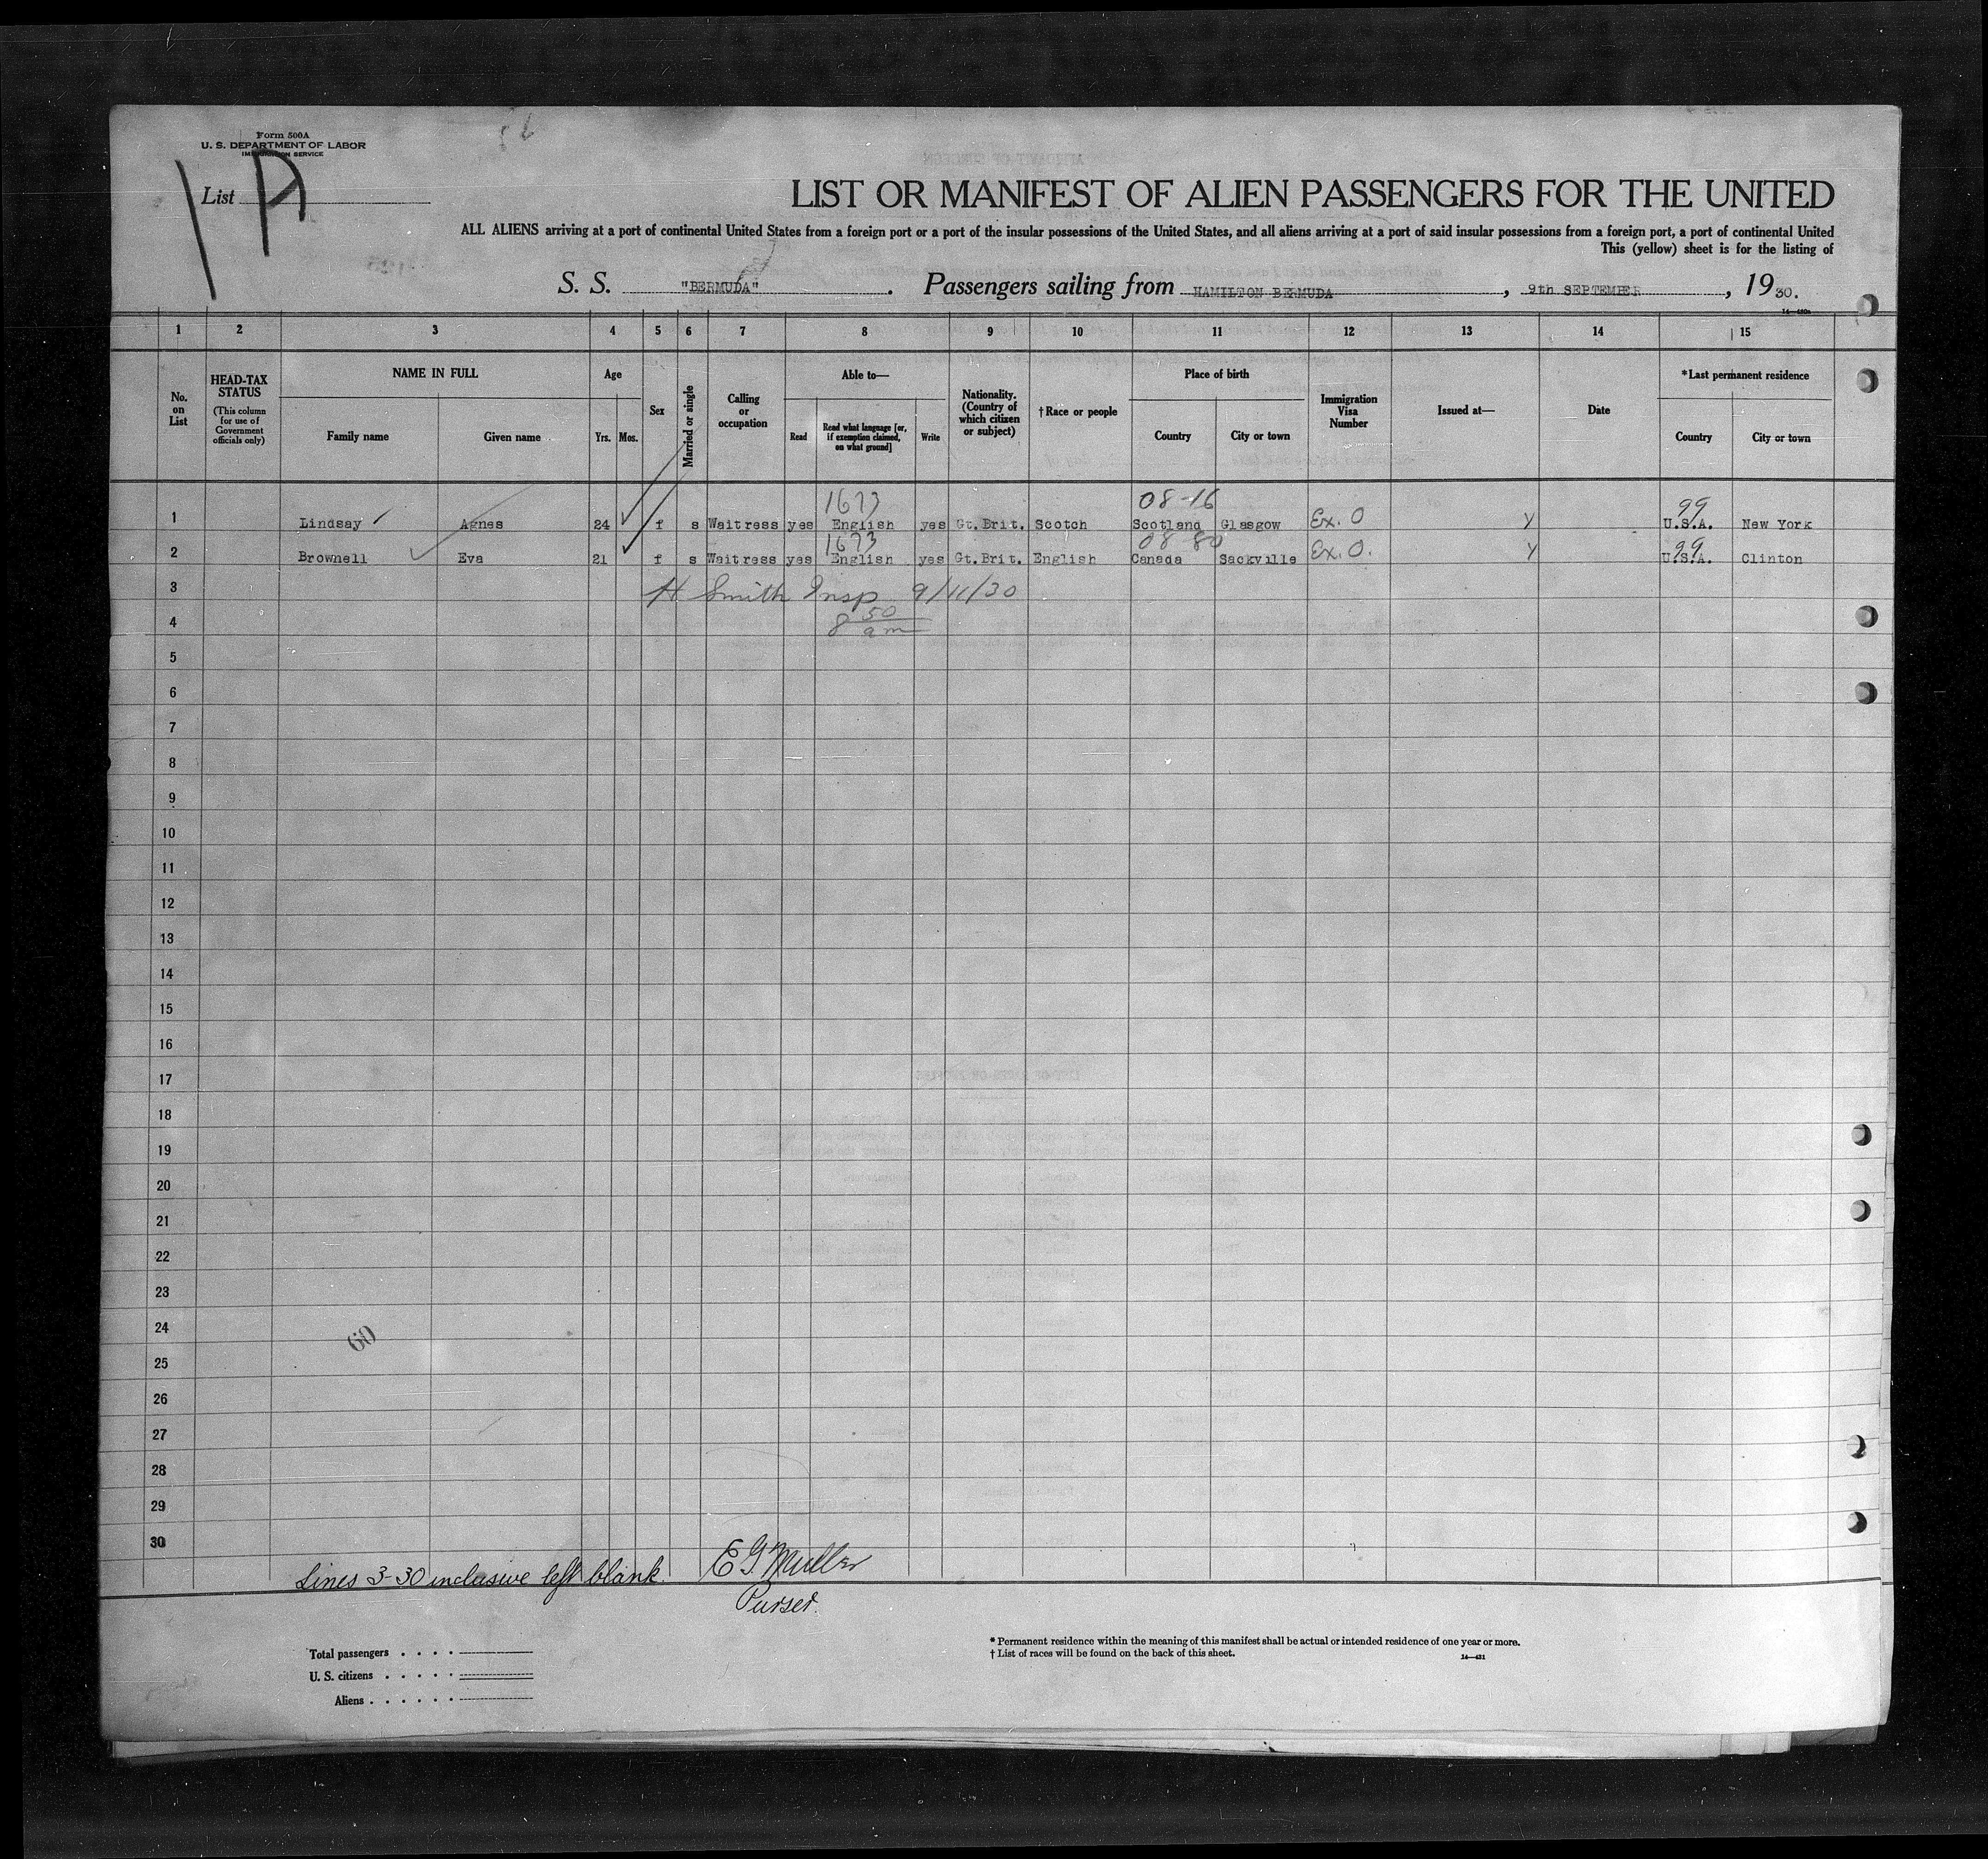 Form 500A
U. S. DEPARTMENT OF LABOR
IMMIGRATION SERVICE
List A
LIST OR MANIFEST OF ALIEN PASSENGERS FOR THE UNITED
ALL ALIENS arriving at a port of continental United States from a foreign port or a port of the insular possessions of the United States, and all aliens arriving at a port of said insular possessions from a foreign port, a port of continental United
This (yellow) sheet is for the listing of
S. S. "BERMUDA". Passengers sailing from HAMILTON BERMUDA, 9th SEPTEMBER, 1930.
14—430a
1 2 3 4 5 6 7 8 9 10 11 12 13 14 15
No. on List
HEAD-TAX STATUS (This column for use of Government officials only)
NAME IN FULL
Family name Given name
Age
Yrs. Mos.
Sex
Married or single
Calling or occupation
Able to—
Read
Read what language [or, if exemption claimed, on what ground]
Write
Nationality. (Country of which citizen or subject)
†Race or people
Place of birth
Country City or town
Immigration Visa Number
Issued at—
Date
*Last permanent residence
Country City or town
1673 08-16 99
1 Lindsay Agnes 24 f s Waitress yes English yes Gt.Brit. Scotch Scotland Glasgow Ex. O Y U.S.A. New York
1673 08 80 99
2 Brownell Eva 21 f s Waitress yes English yes Gt.Brit. English Canada Sackville Ex. O. Y U.S.A. Clinton
3 H Smith Insp 9/11/30
4 8 50 am
5
6
7
8
9
10
11
12
13
14
15
16
17
18
19
20
21
22
23
24
60
25
26
27
28
29
30
Lines 3-30 inclusive left blank. E G. Muller
Purser.
Total passengers
U. S. citizens
Aliens
* Permanent residence within the meaning of this manifest shall be actual or intended residence of one year or more.
† List of races will be found on the back of this sheet.
14—431